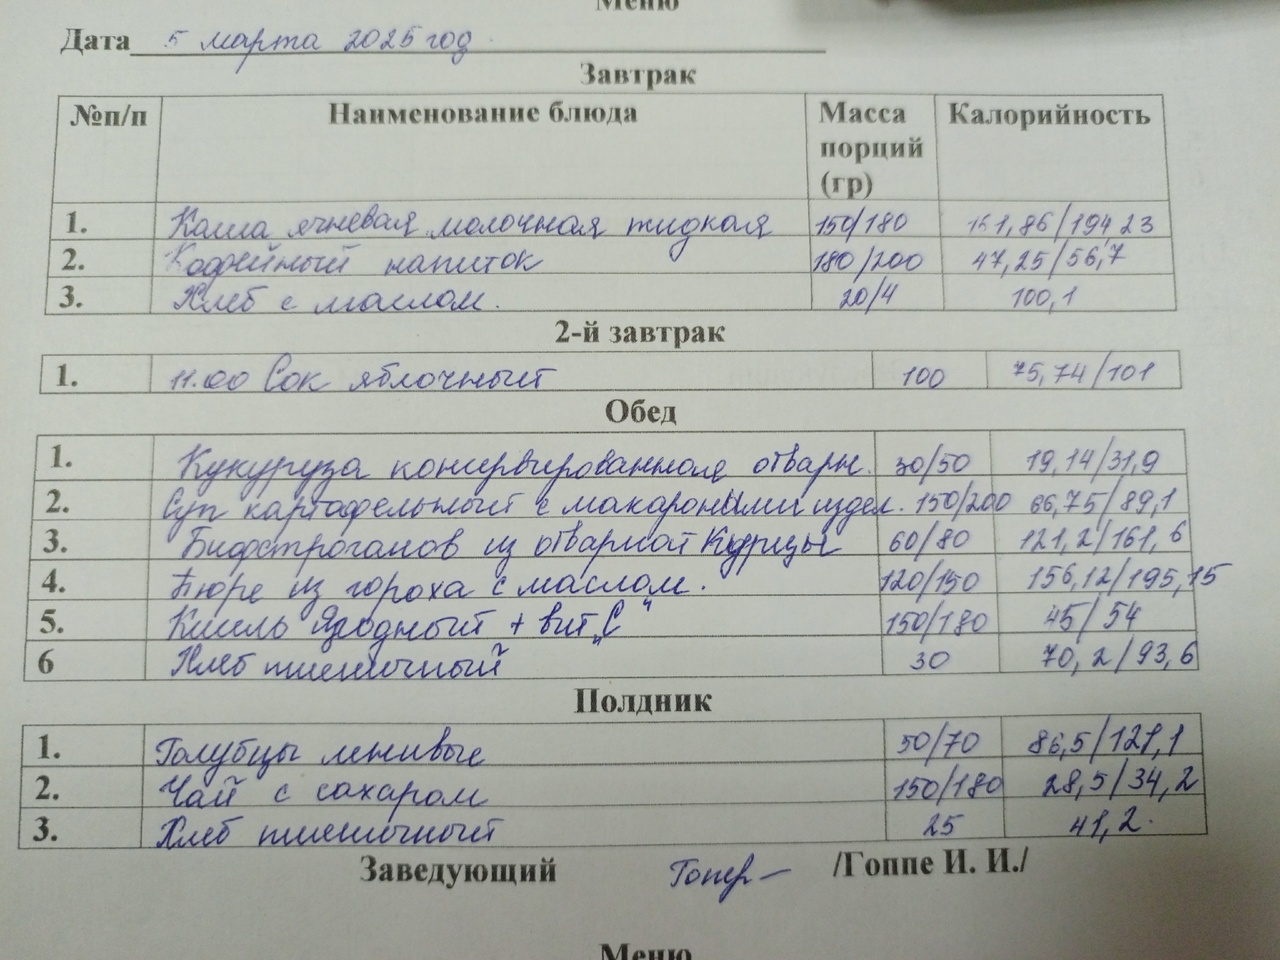 Меню
Дата 5 марта 2025 год.
Завтрак
№п/п Наименование блюда Масса порций (гр) Калорийность
1. Каша ячневая молочная жидкая 150/180 161,86/194 23
2. Кофейный напиток 180/200 47,25/56,7
3. Хлеб с маслом. 20/4 100,1
2-й завтрак
1. 11.00 Сок яблочный 100 75,74/101
Обед
1. Кукуруза консервированная отварн. 30/50 19,14/31,9
2. Суп картофельный с макароными издел. 150/200 66,75/89,1
3. Бифстроганов из отварной Курицы 60/80 121,2/161,6
4. Пюре из гороха с маслом. 120/150 156,12/195,15
5. Кисель Ягодный + вит „С" 150/180 45/54
6 Хлеб пшеничный 30 70,2/93,6
Полдник
1. Голубцы ленивые 50/70 86,5/121,1
2. Чай с сахаром 150/180 28,5/34,2
3. Хлеб пшеничный 25 41,2.
Заведующий /Гоппе И. И./
Меню